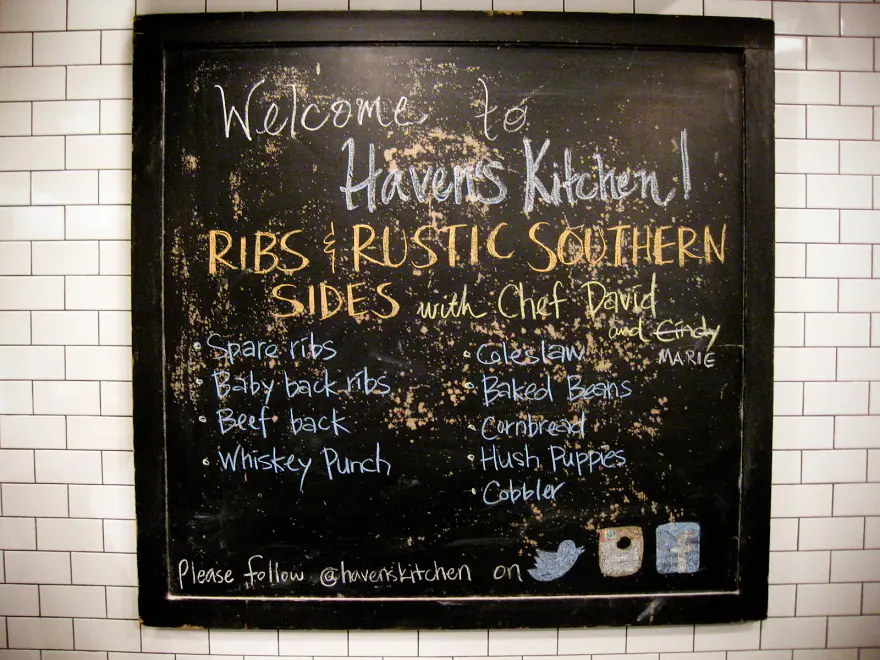 Welcome to
Haven's Kitchen!
RIBS & RUSTIC SOUTHERN
SIDES with Chef David
and Cindy
MARIE
• Spare ribs
• Baby back ribs
• Beef back
• Whiskey Punch
• Coleslaw
• Baked Beans
• Cornbread
• Hush Puppies
• Cobbler
Please follow @havenskitchen on
f